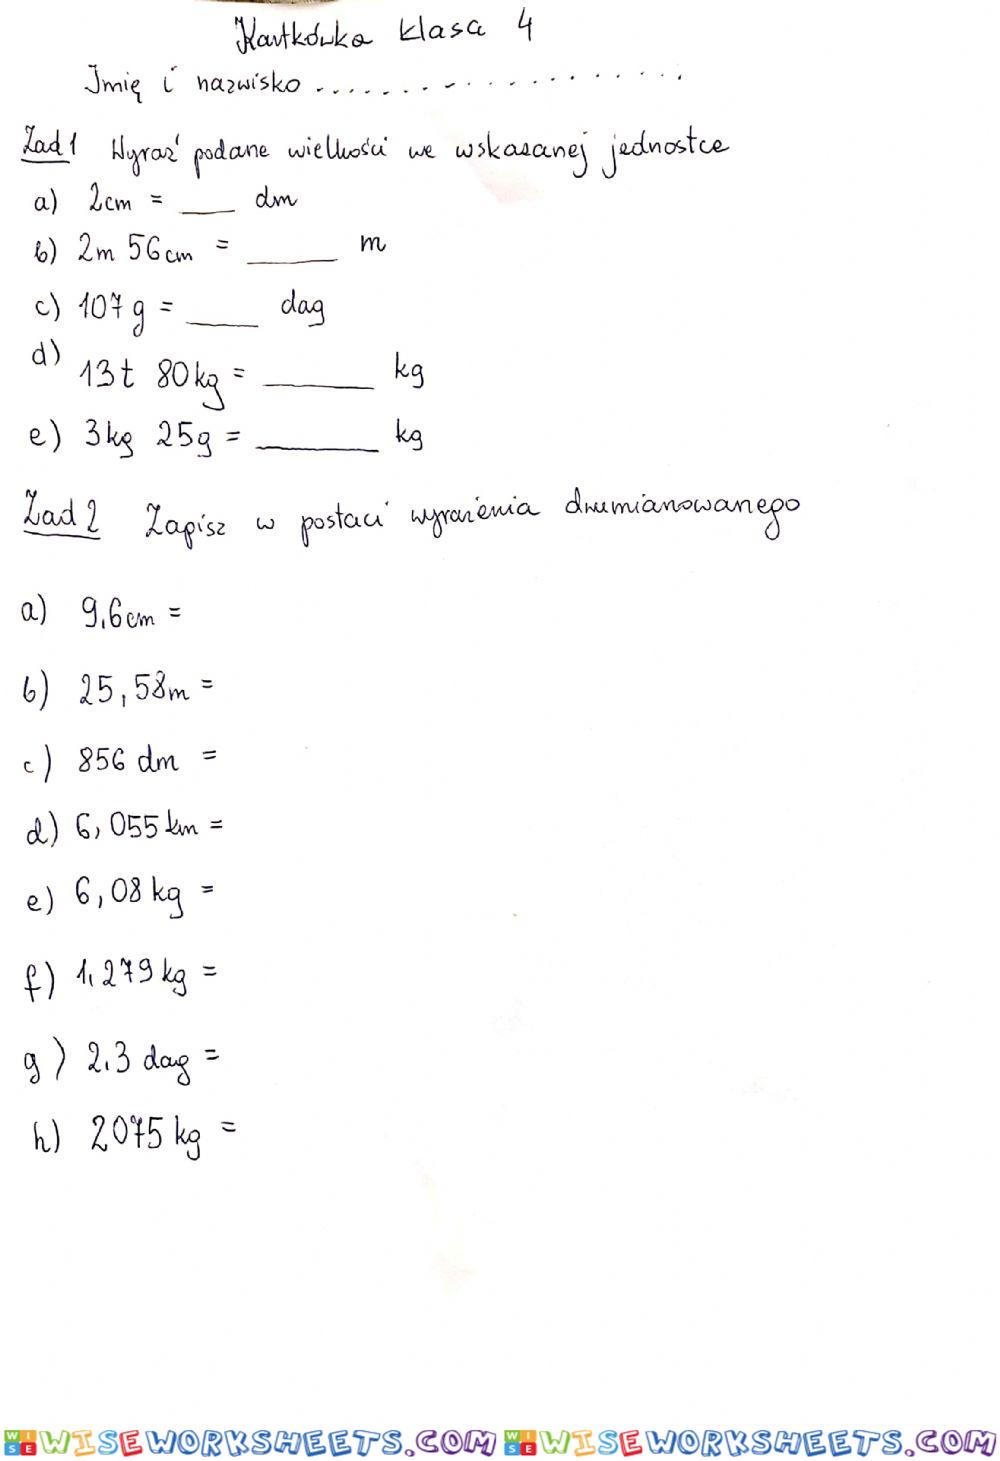 Kartkówka klasa 4
Imię i nazwisko ....................
Zad 1 Wyraź podane wielkości we wskazanej jednostce
a) 2cm = ___ dm
b) 2m 56cm = _____ m
c) 107g = ____ dag
d) 13t 80kg = ______ kg
e) 3kg 25g = _______ kg
Zad 2 Zapisz w postaci wyrażenia dwumianowanego
a) 9,6cm =
b) 25,58m =
c) 856 dm =
d) 6,055km =
e) 6,08kg =
f) 1,279kg =
g) 2,3 dag =
h) 2075kg =
WISE WISEWORKSHEETS.COM WISE WISEWORKSHEETS.COM